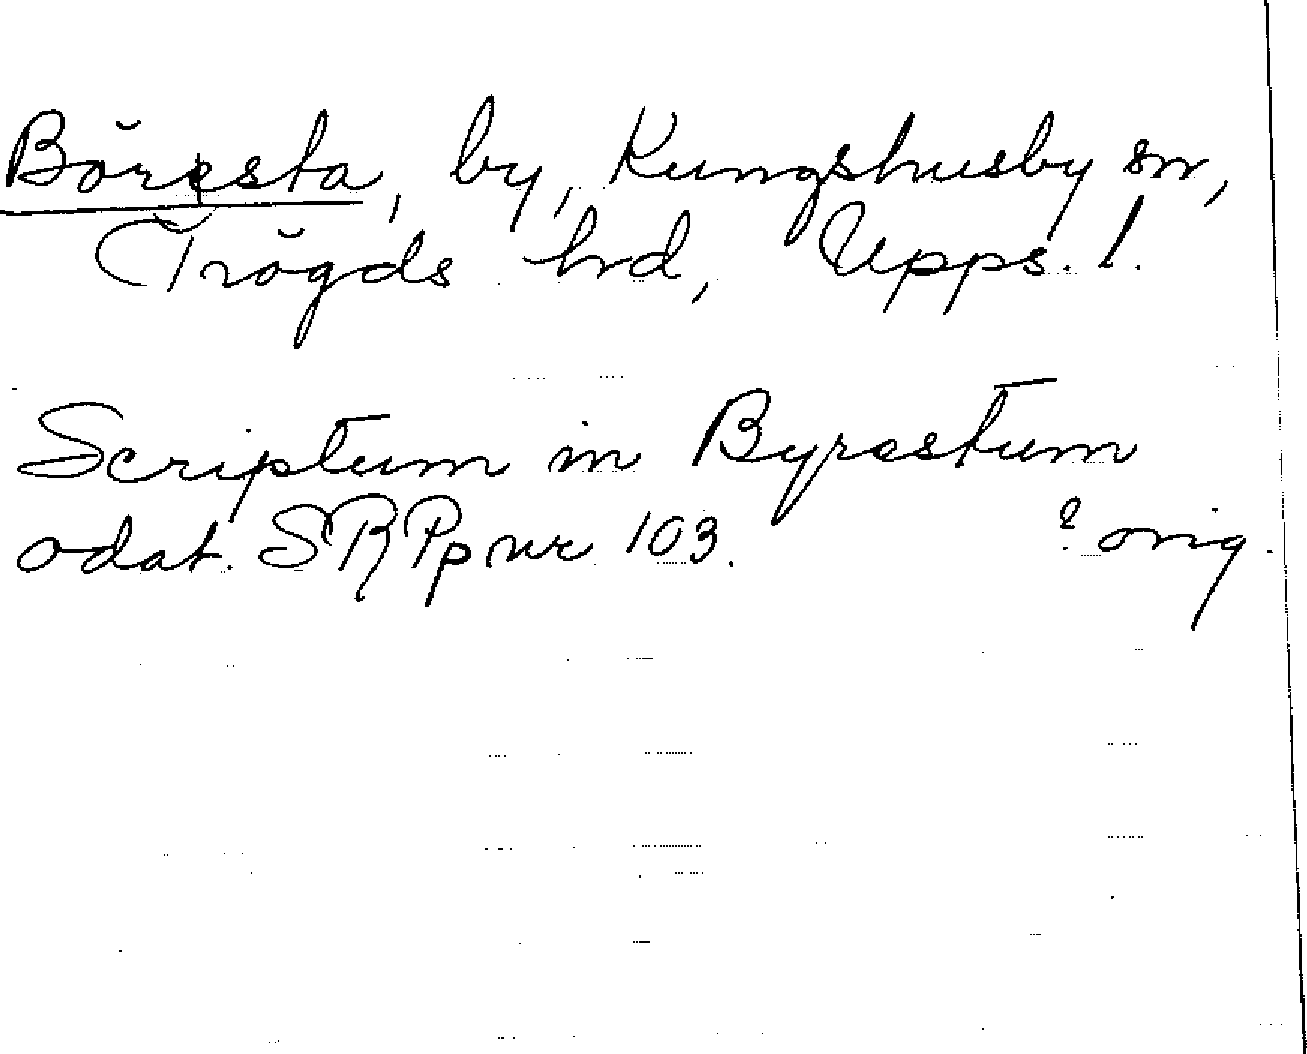 Böresta, by, Kungshusby sn,
Trögds hrd, Upps. l.
Scriptum in Byrestum
odat. SRPp nr 103. ? orig.